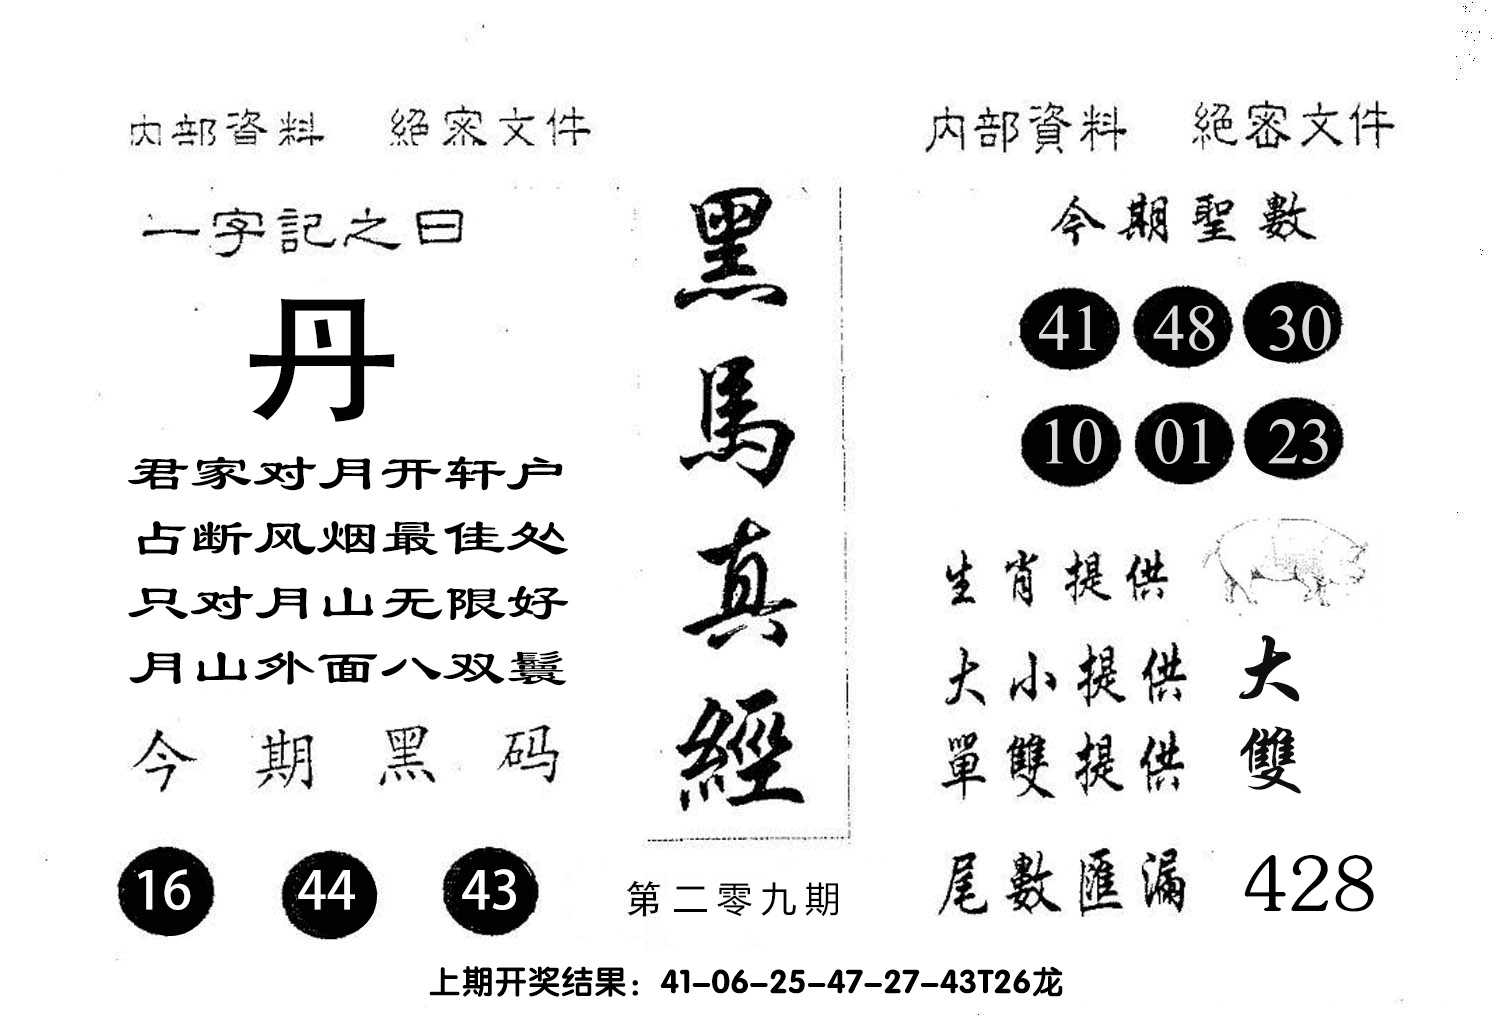 内部資料 絕密文件
一字記之曰
丹
君家对月开轩户
占断风烟最佳处
只对月山无限好
月山外面八双鬟
今期黑码
16 44 43
黑馬真經
第二零九期
内部資料 絕密文件
今期聖數
41 48 30
10 01 23
生肖提供
大小提供 大
單雙提供 雙
尾數匯漏 428
上期开奖结果：41-06-25-47-27-43T26龙